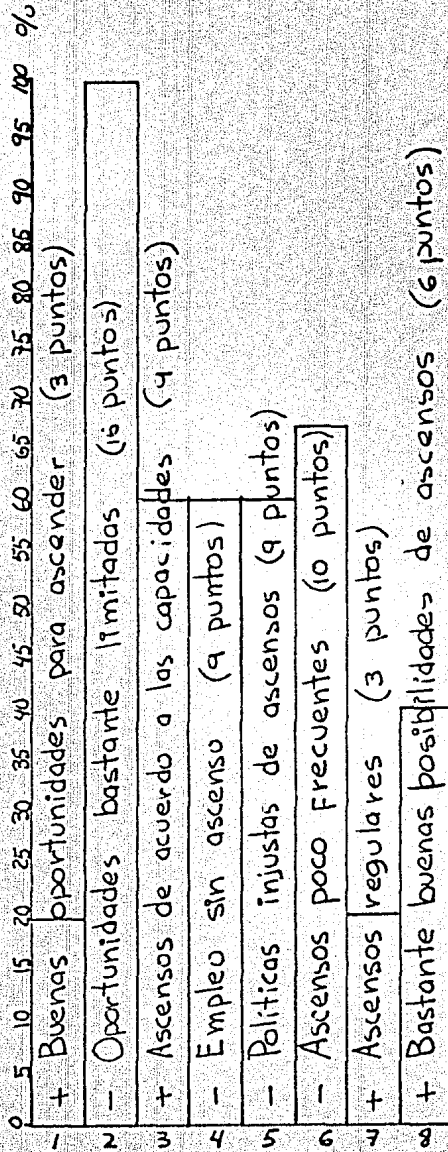 0 5 10 15 20 25 30 35 40 45 50 55 60 65 70 75 80 85 90 95 100 %
1 + Buenas oportunidades para ascender (3 puntos)
2 - Oportunidades bastante limitadas (15 puntos)
3 + Ascensos de acuerdo a las capacidades (9 puntos)
4 - Empleo sin ascenso (9 puntos)
5 - Politicas injustas de ascensos (9 puntos)
6 - Ascensos poco frecuentes (10 puntos)
7 + Ascensos regulares (3 puntos)
8 + Bastante buenas posibilidades de ascensos (6 puntos)